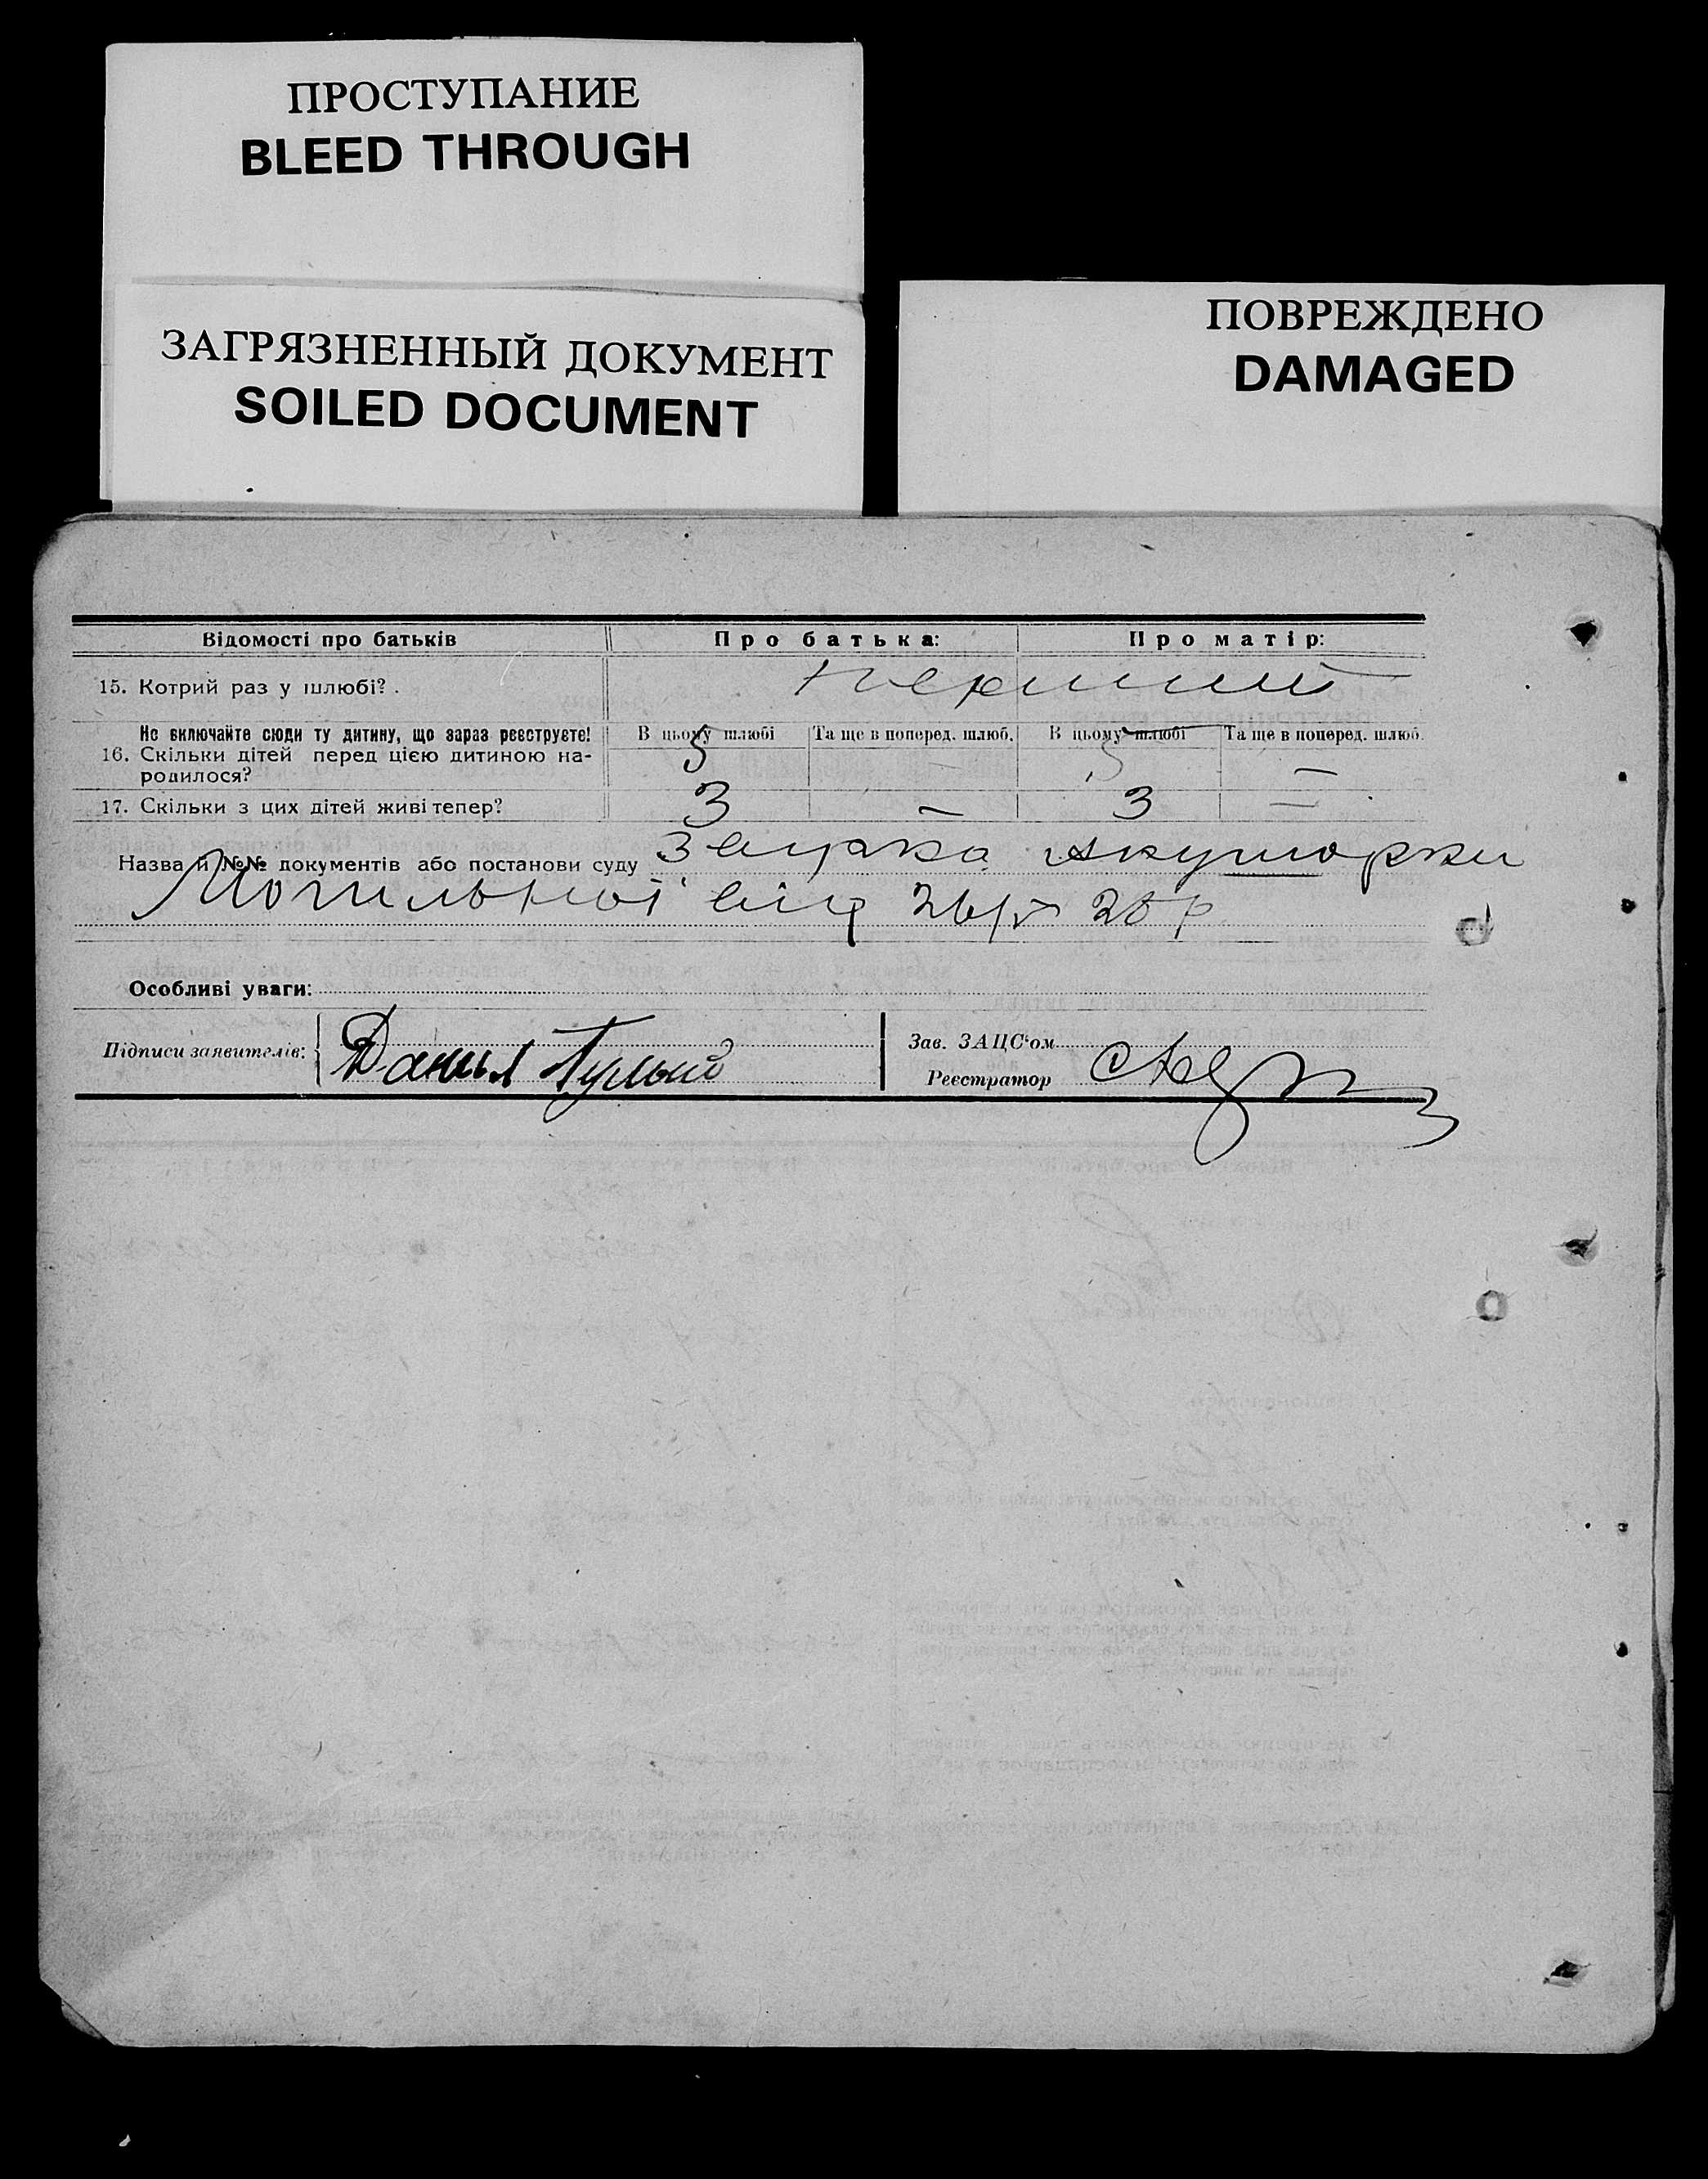 ПРОСТУПАНИЕ
BLEED THROUGH
ЗАГРЯЗНЕННЫЙ ДОКУМЕНТ
SOILED DOCUMENT
ПОВРЕЖДЕНО
DAMAGED
Відомості про батьків Про батька: Про матір:
15. Котрий раз у шлюбі? . перший
Не включайте сюди ту дитину, що зараз реєструєте! В цьому шлюбі Та ще в поперед. шлюб. В цьому шлюбі Та ще в поперед. шлюб.
16. Скільки дітей перед цією дитиною на- 5 — 5 —
родилося?
17. Скільки з цих дітей живі тепер? 3 — 3 —
Назва й №№ документів або постанови суду акушорки
Могильної від 26/V 28 р
Особливі уваги:
Підписи заявителів: Данил Зав. ЗАЦС'ом
Реєстратор